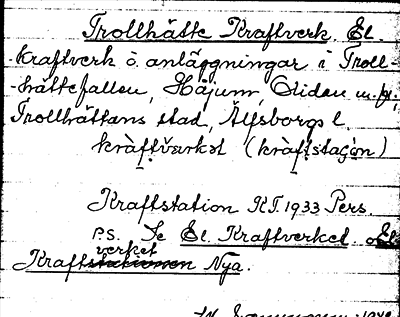 Trollhätte Kraftverk, El.
kraftverk o. anläggningar i Troll-
-hättefallen, Håjum, Oliden m.fl.,
Trollhättans stad, Älfsborgs l.
kràftvärkət (kràftstaʃón)
Kraftstation K.T. 1933 Pers.
P.S. Se El. Kraftverket o. El.
verket
Kraftstationen Nya.